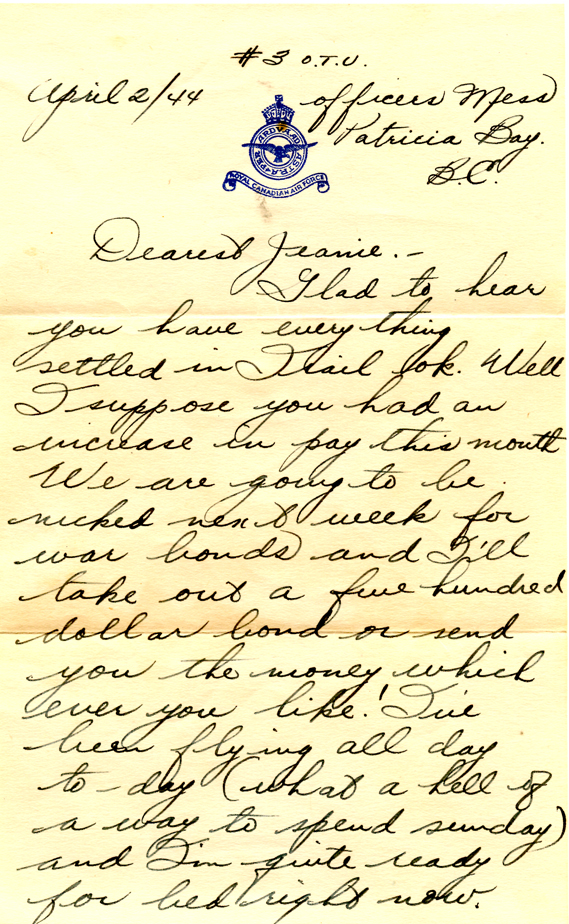 #3 O.T.U.
April 2/44 officers Mess
Patricia Bay.
B.C.
PER ARDUA AD ASTRA
ROYAL CANADIAN AIR FORCE
Dearest Jeanie.-
Glad to hear
you have everything
settled in Trail ok. Well
I suppose you had an
increase in pay this month
We are going to be
nicked next week for
war bonds and I'll
take out a five hundred
dollar bond or send
you the money which
ever you like! I've
been flying all day
to-day (what a hell of
a way to spend sunday)
and I'm quite ready
for bed right now.